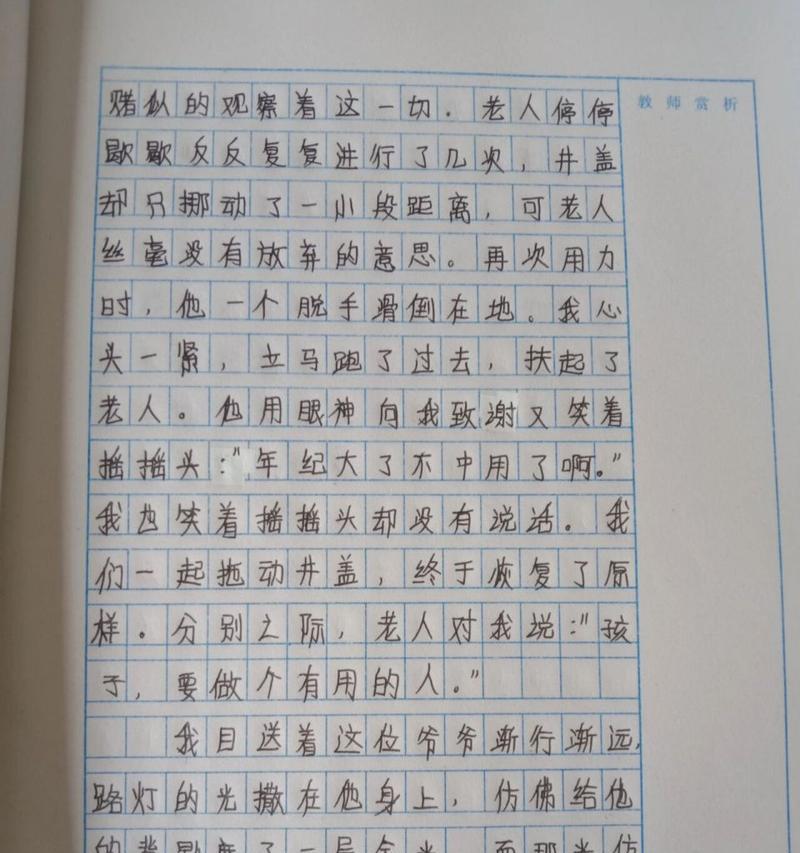 教师赏析
似的观察着这一切.老人停停
歇歇反反复复进行了几次,井盖
却只挪动了一小段距离,可老人
丝毫没有放弃的意思。再次用力
时,他一个脱手滑倒在地。我心
头一紧,立马跑了过去,扶起了
老人。他用眼神向我致谢又笑着
摇摇头:"年纪大了不中用了啊。"
我也笑着摇摇头却没有说话。我
们一起拖动井盖,终于恢复了原
样。分别之际,老人对我说:"孩
子,要做个有用的人。"
我目送着这位爷爷渐行渐远,
路灯的光撒在他身上,仿佛给他